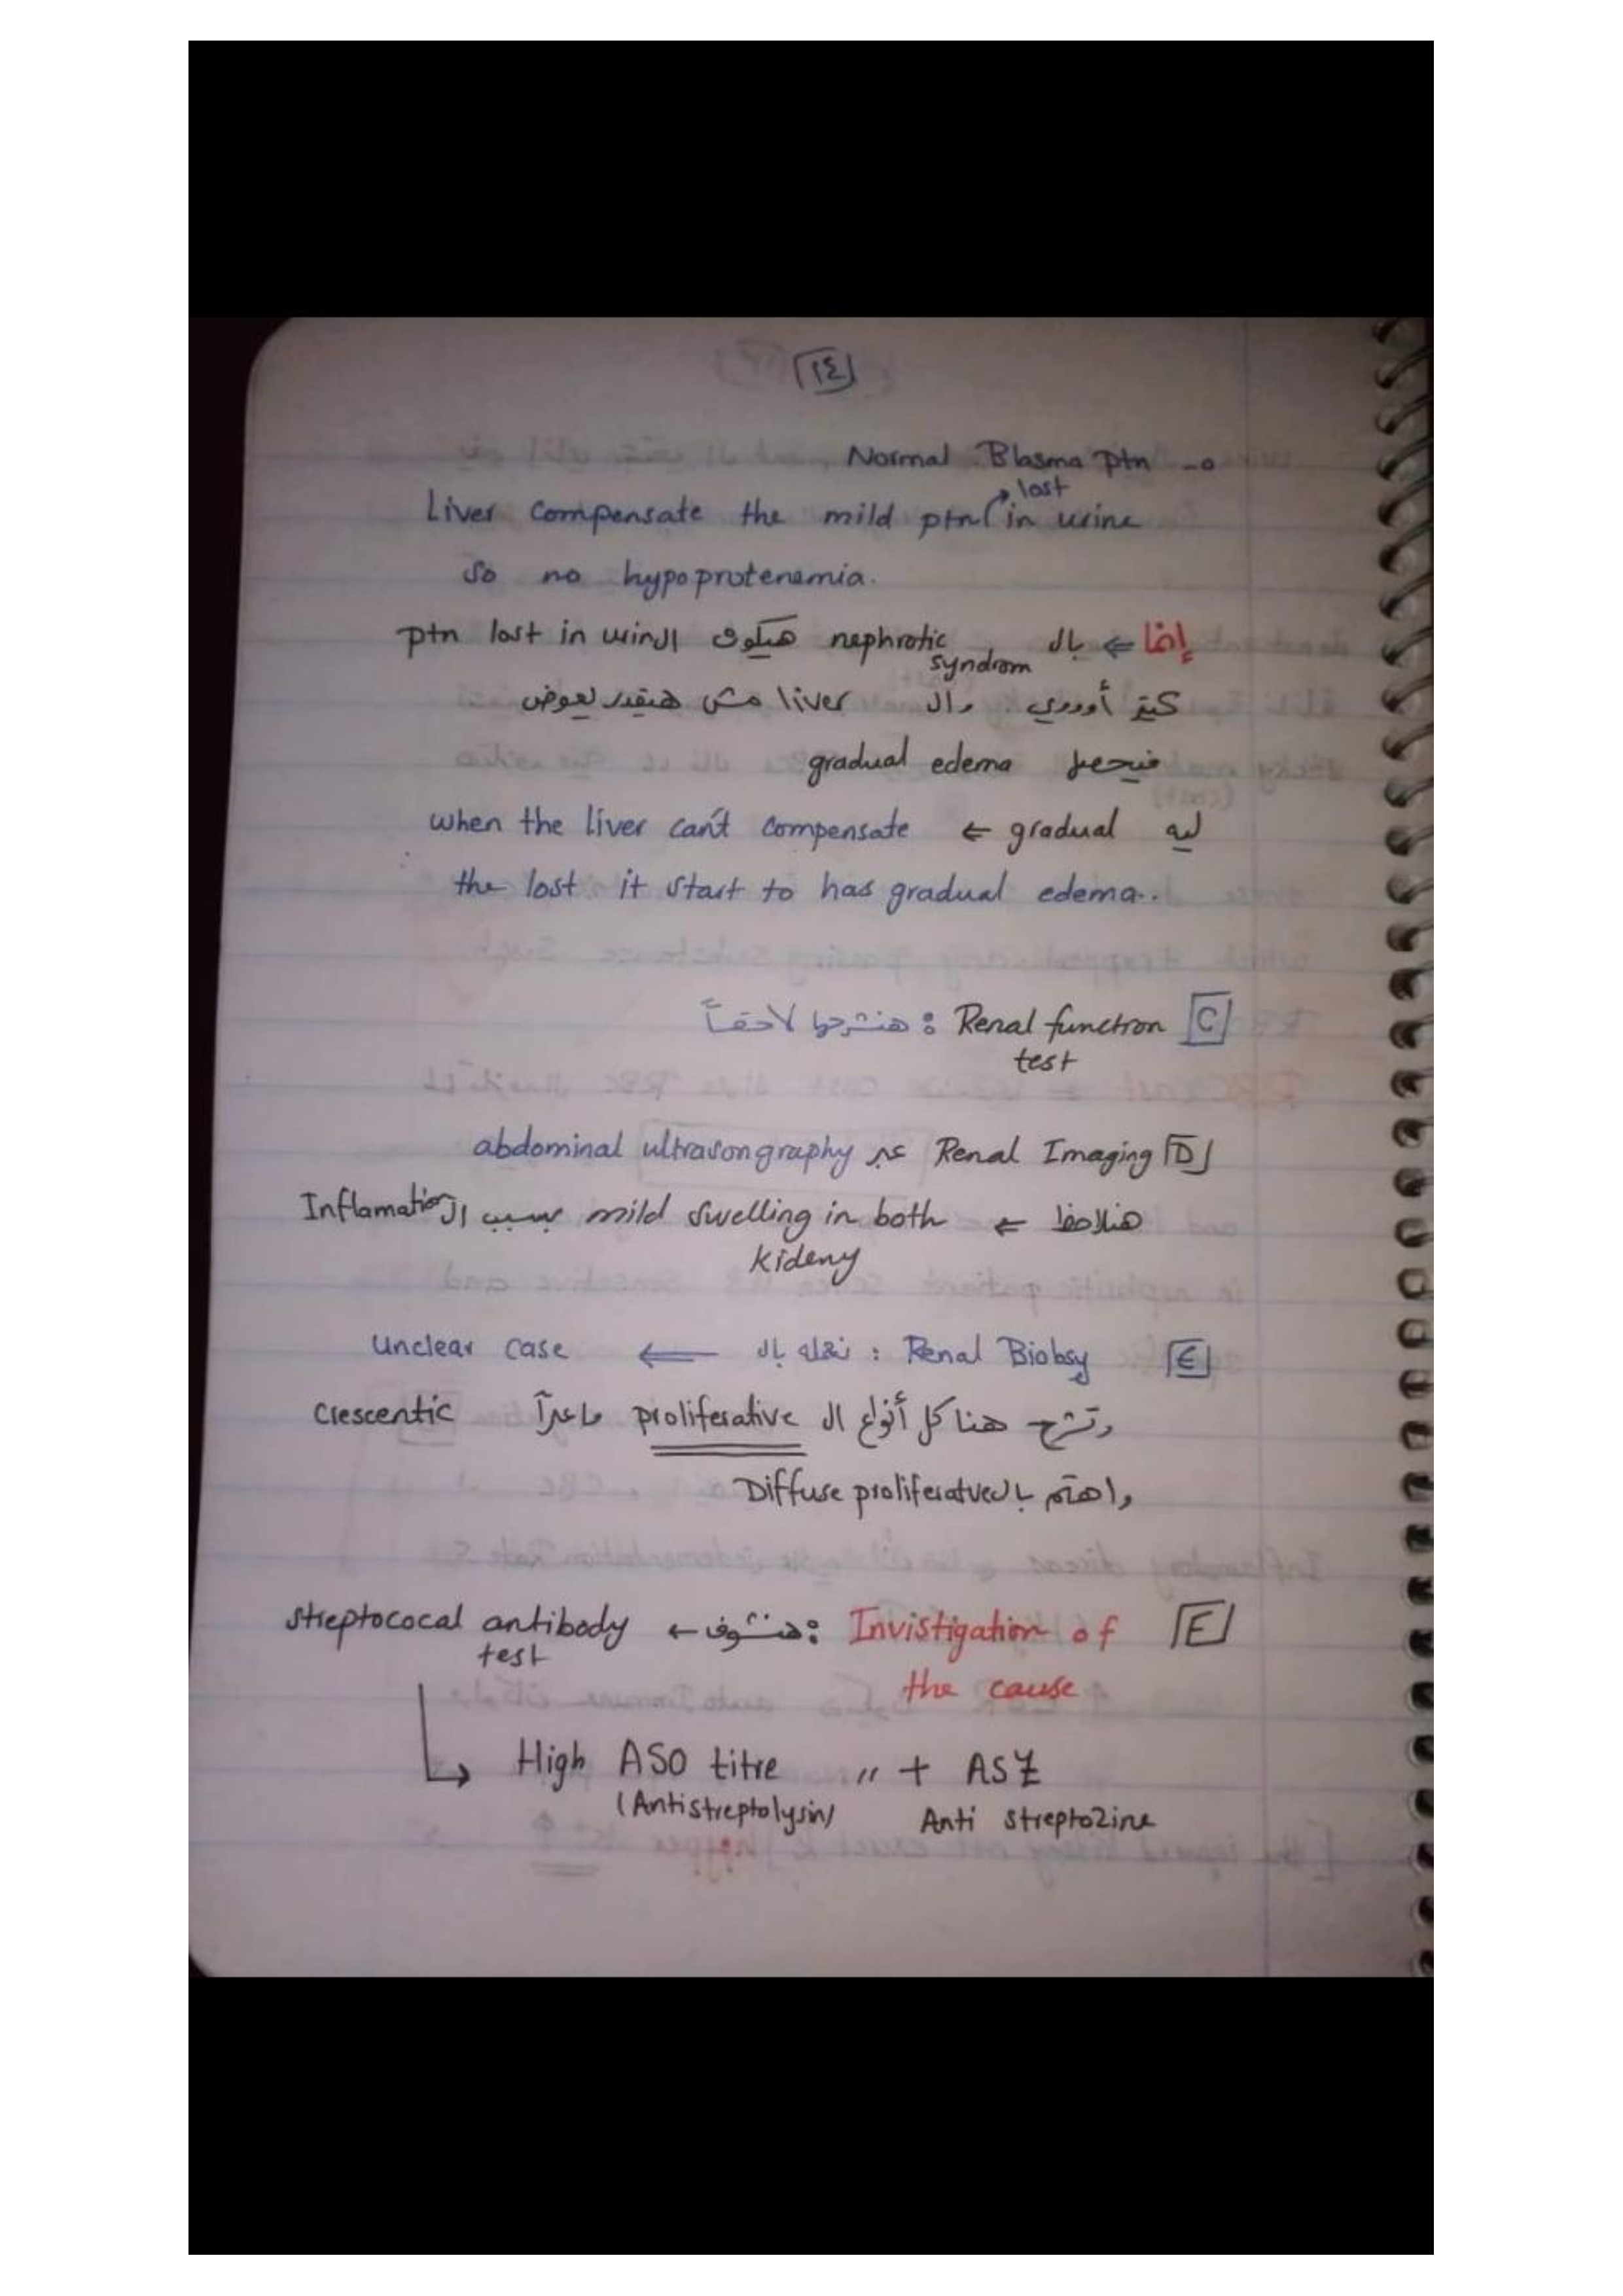 ١٤
Normal Blasma ptn -o
Liver compensate the mild ptn lost in urine
So no hypoprotenemia.
إنما ⇐ بال nephrotic syndrom هيكون ال ptn lost in urin
كتير أووووي وال liver مش هيقدر يعوض
فيحصل gradual edema
ليه gradual ⇐ when the liver can't compensate
the lost it start to has gradual edema..
C Renal function test : هنشرحها لاحقاً
D Renal Imaging عبر abdominal ultrasongraphy
هنلاحظ ⇐ mild swelling in both kideny بسبب ال Inflamation
E Renal Biobsy : نعمله بال ⇐ Unclear case
وتشرح هنا كل أنواع ال proliferative ماعدآ Crescentic
واهتم بال Diffuse proliferatve
F Invistigation of the cause : هنشوف ← streptococal antibody test
High ASO titre " + ASZ
(Antistreptolysin) Anti streptozine